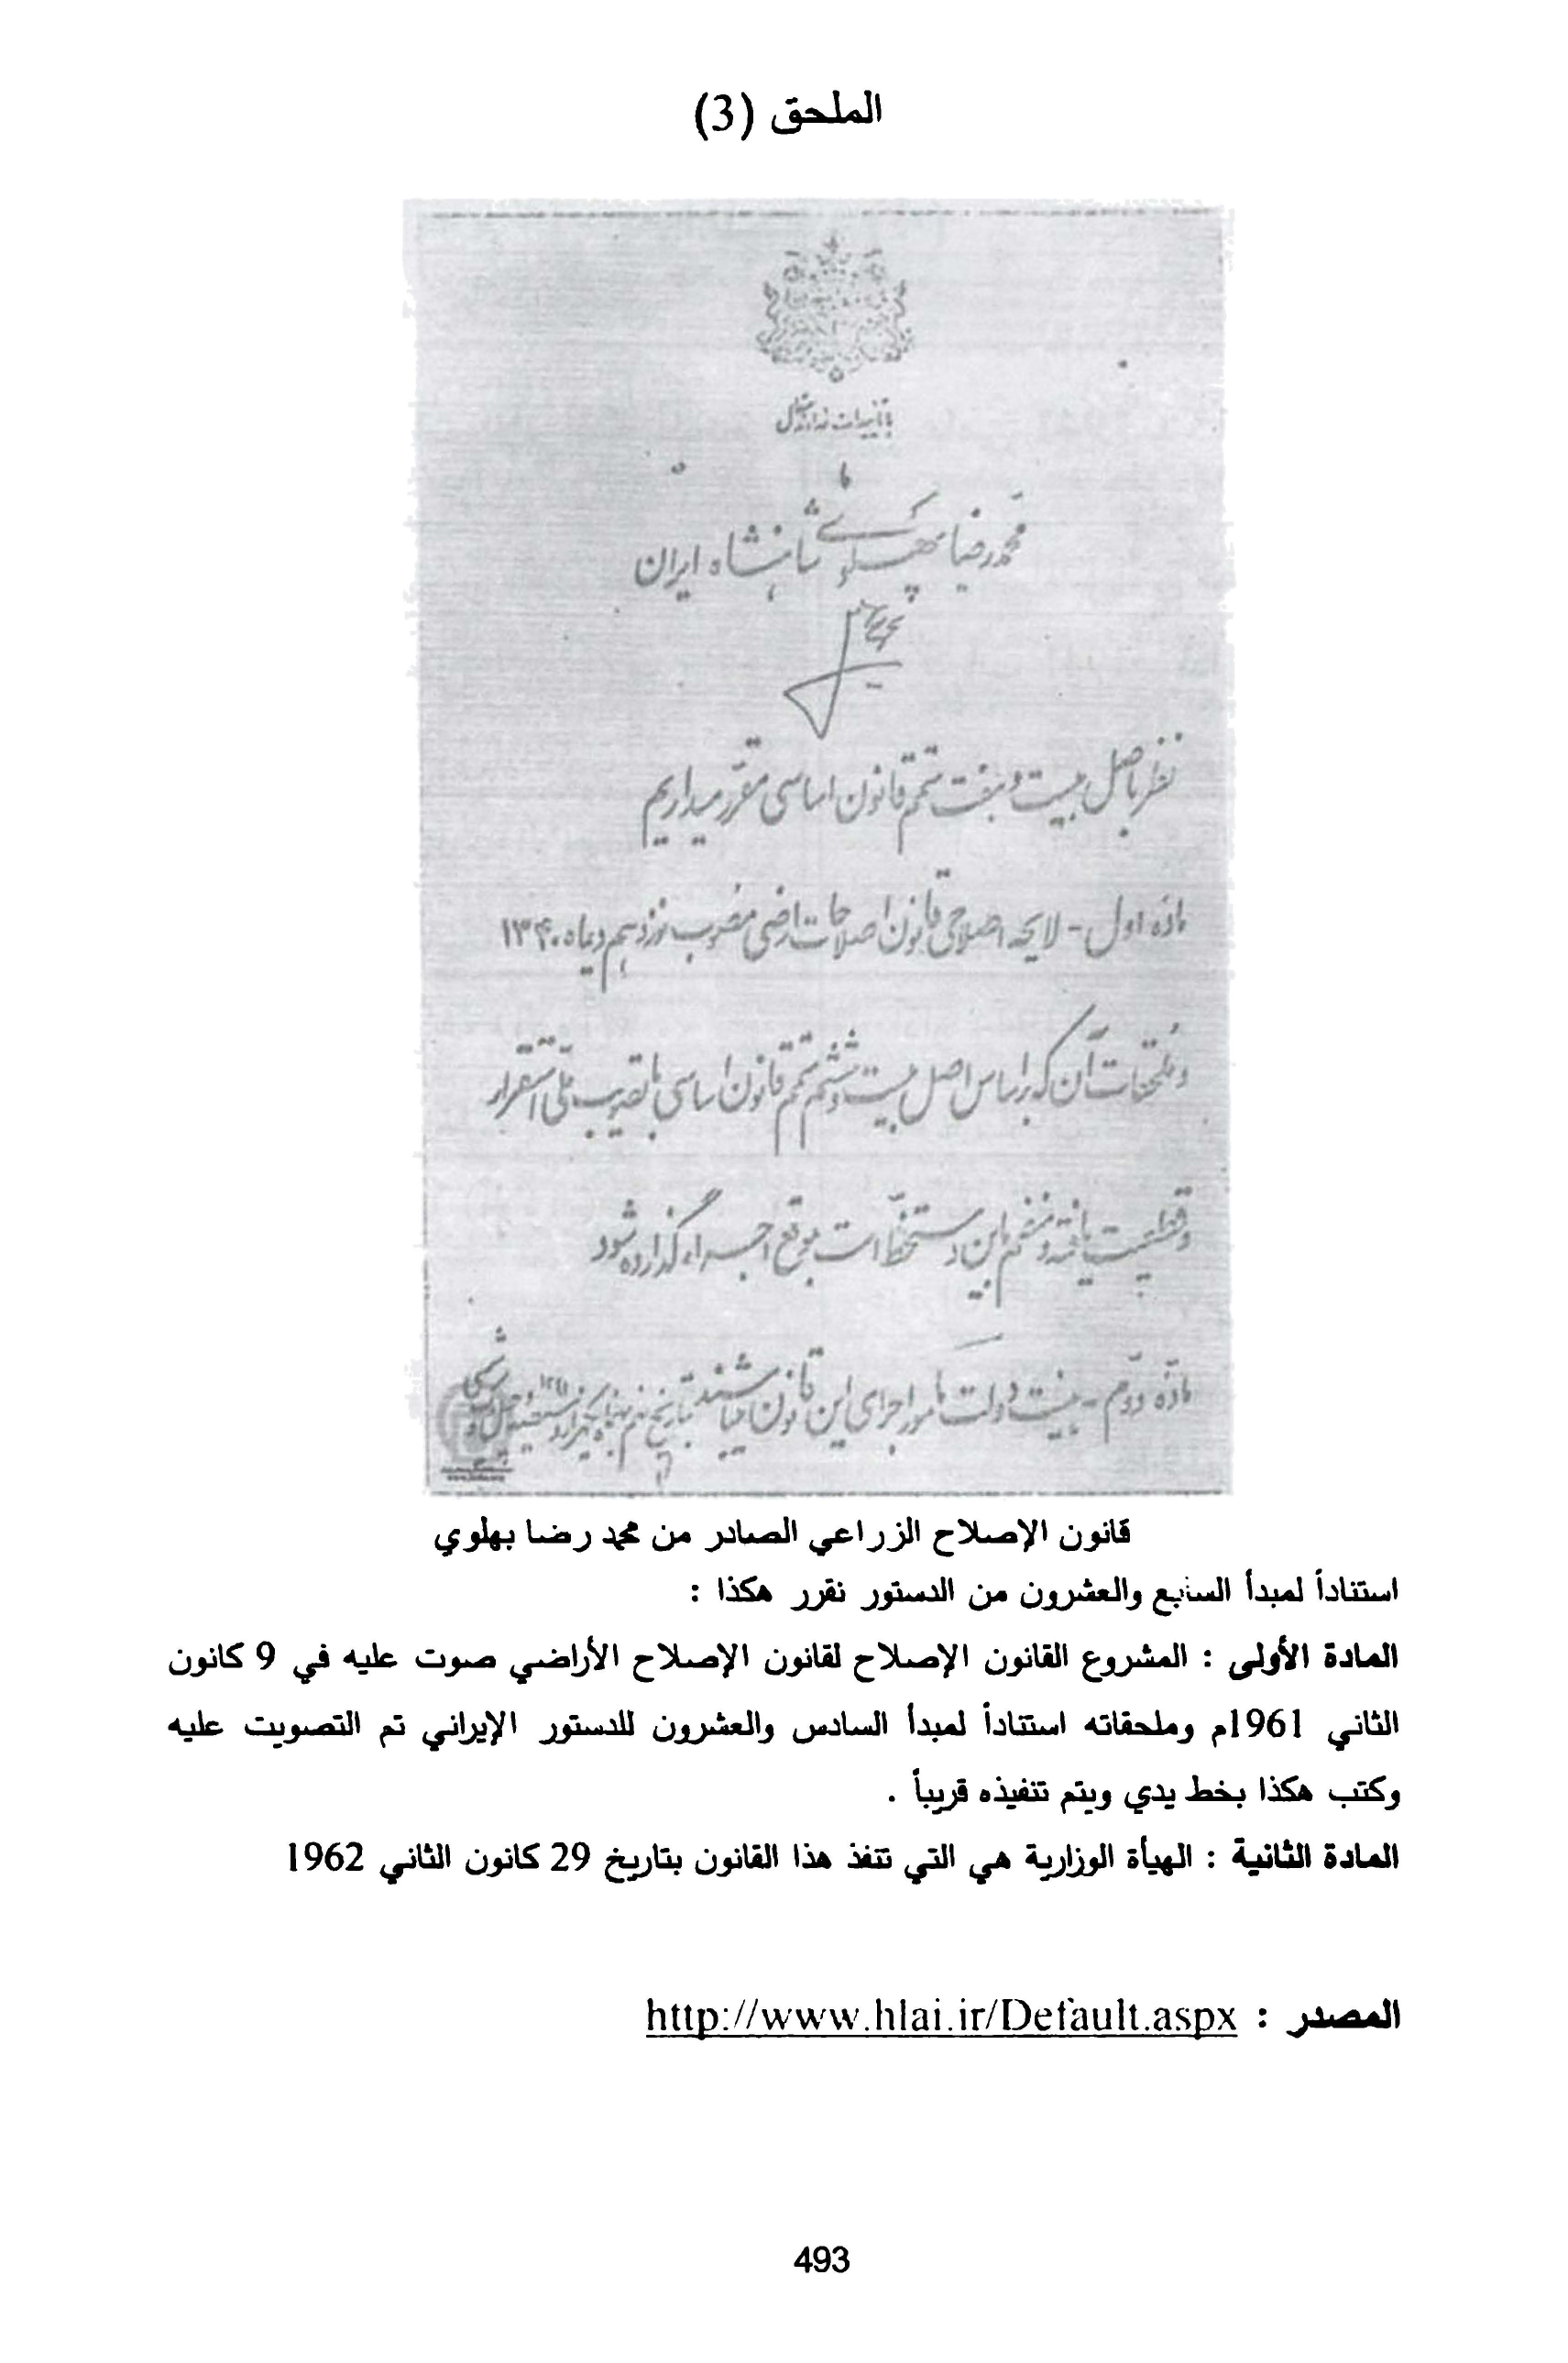 الملحق (3)
با تأییدات خداوند متعال
ما
محمدرضا پهلوی شاهنشاه ایران
نظر باصل بیست و هفت متمم قانون اساسی مقرر میداریم
مادّه اول - لایحه اصلاحی قانون اصلاحات ارضی مصوب نوزدهم دیماه ۱۳۴۰
و ملحقات آن که بر اساس اصل بیست و ششم متمم قانون اساسی با تصویب ملی استقرار
و قطعیت یافته و منضم باین دستخط است بموقع اجراء گذارده شود
مادّه دوّم - هیئت دولت مأمور اجرای این قانون میباشند بتاریخ
قانون الإصلاح الزراعي الصادر من محمد رضا بهلوي
استناداً لمبدأ السابع والعشرون من الدستور نقرر هكذا :
المادة الأولى : المشروع القانون الإصلاح لقانون الإصلاح الأراضي صوت عليه في 9 كانون
الثاني 1961م وملحقاته استناداً لمبدأ السادس والعشرون للدستور الإيراني تم التصويت عليه
وكتب هكذا بخط يدي ويتم تنفيذه قريباً .
المادة الثانية : الهيأة الوزارية هي التي تنفذ هذا القانون بتاريخ 29 كانون الثاني 1962
المصدر : http://www.hlai.ir/Default.aspx
493